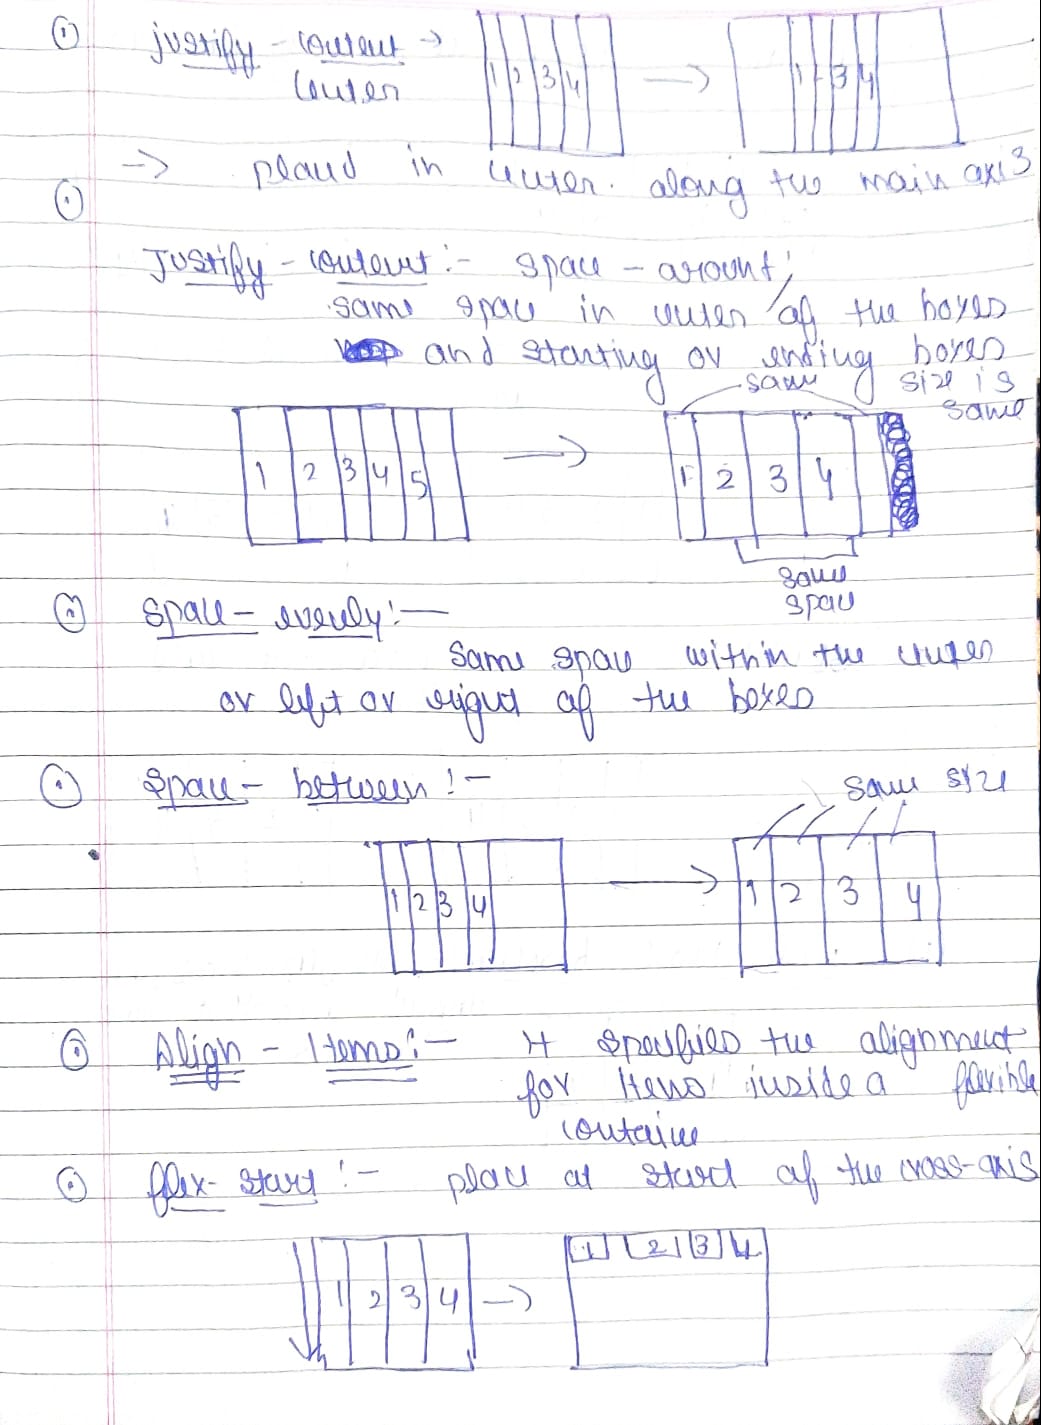 justify - content →
center
1 2 3 4 → 1 2 3 4
→ placed in center. along the main axis
Justify - content :- space - arount;
same space in center of the boxes
and starting or ending boxes
same size is
same
1 2 3 4 5 → 1 2 3 4
same
space
space - evenly :-
same space within the center
or left or right of the boxes
space - between :-
same size
1 2 3 4 → 1 2 3 4
Align - Items :- It specifies the alignment
for items inside a flexible
container
flex - start :- place at start of the cross-axis
1 2 3 4 → 1 2 3 4